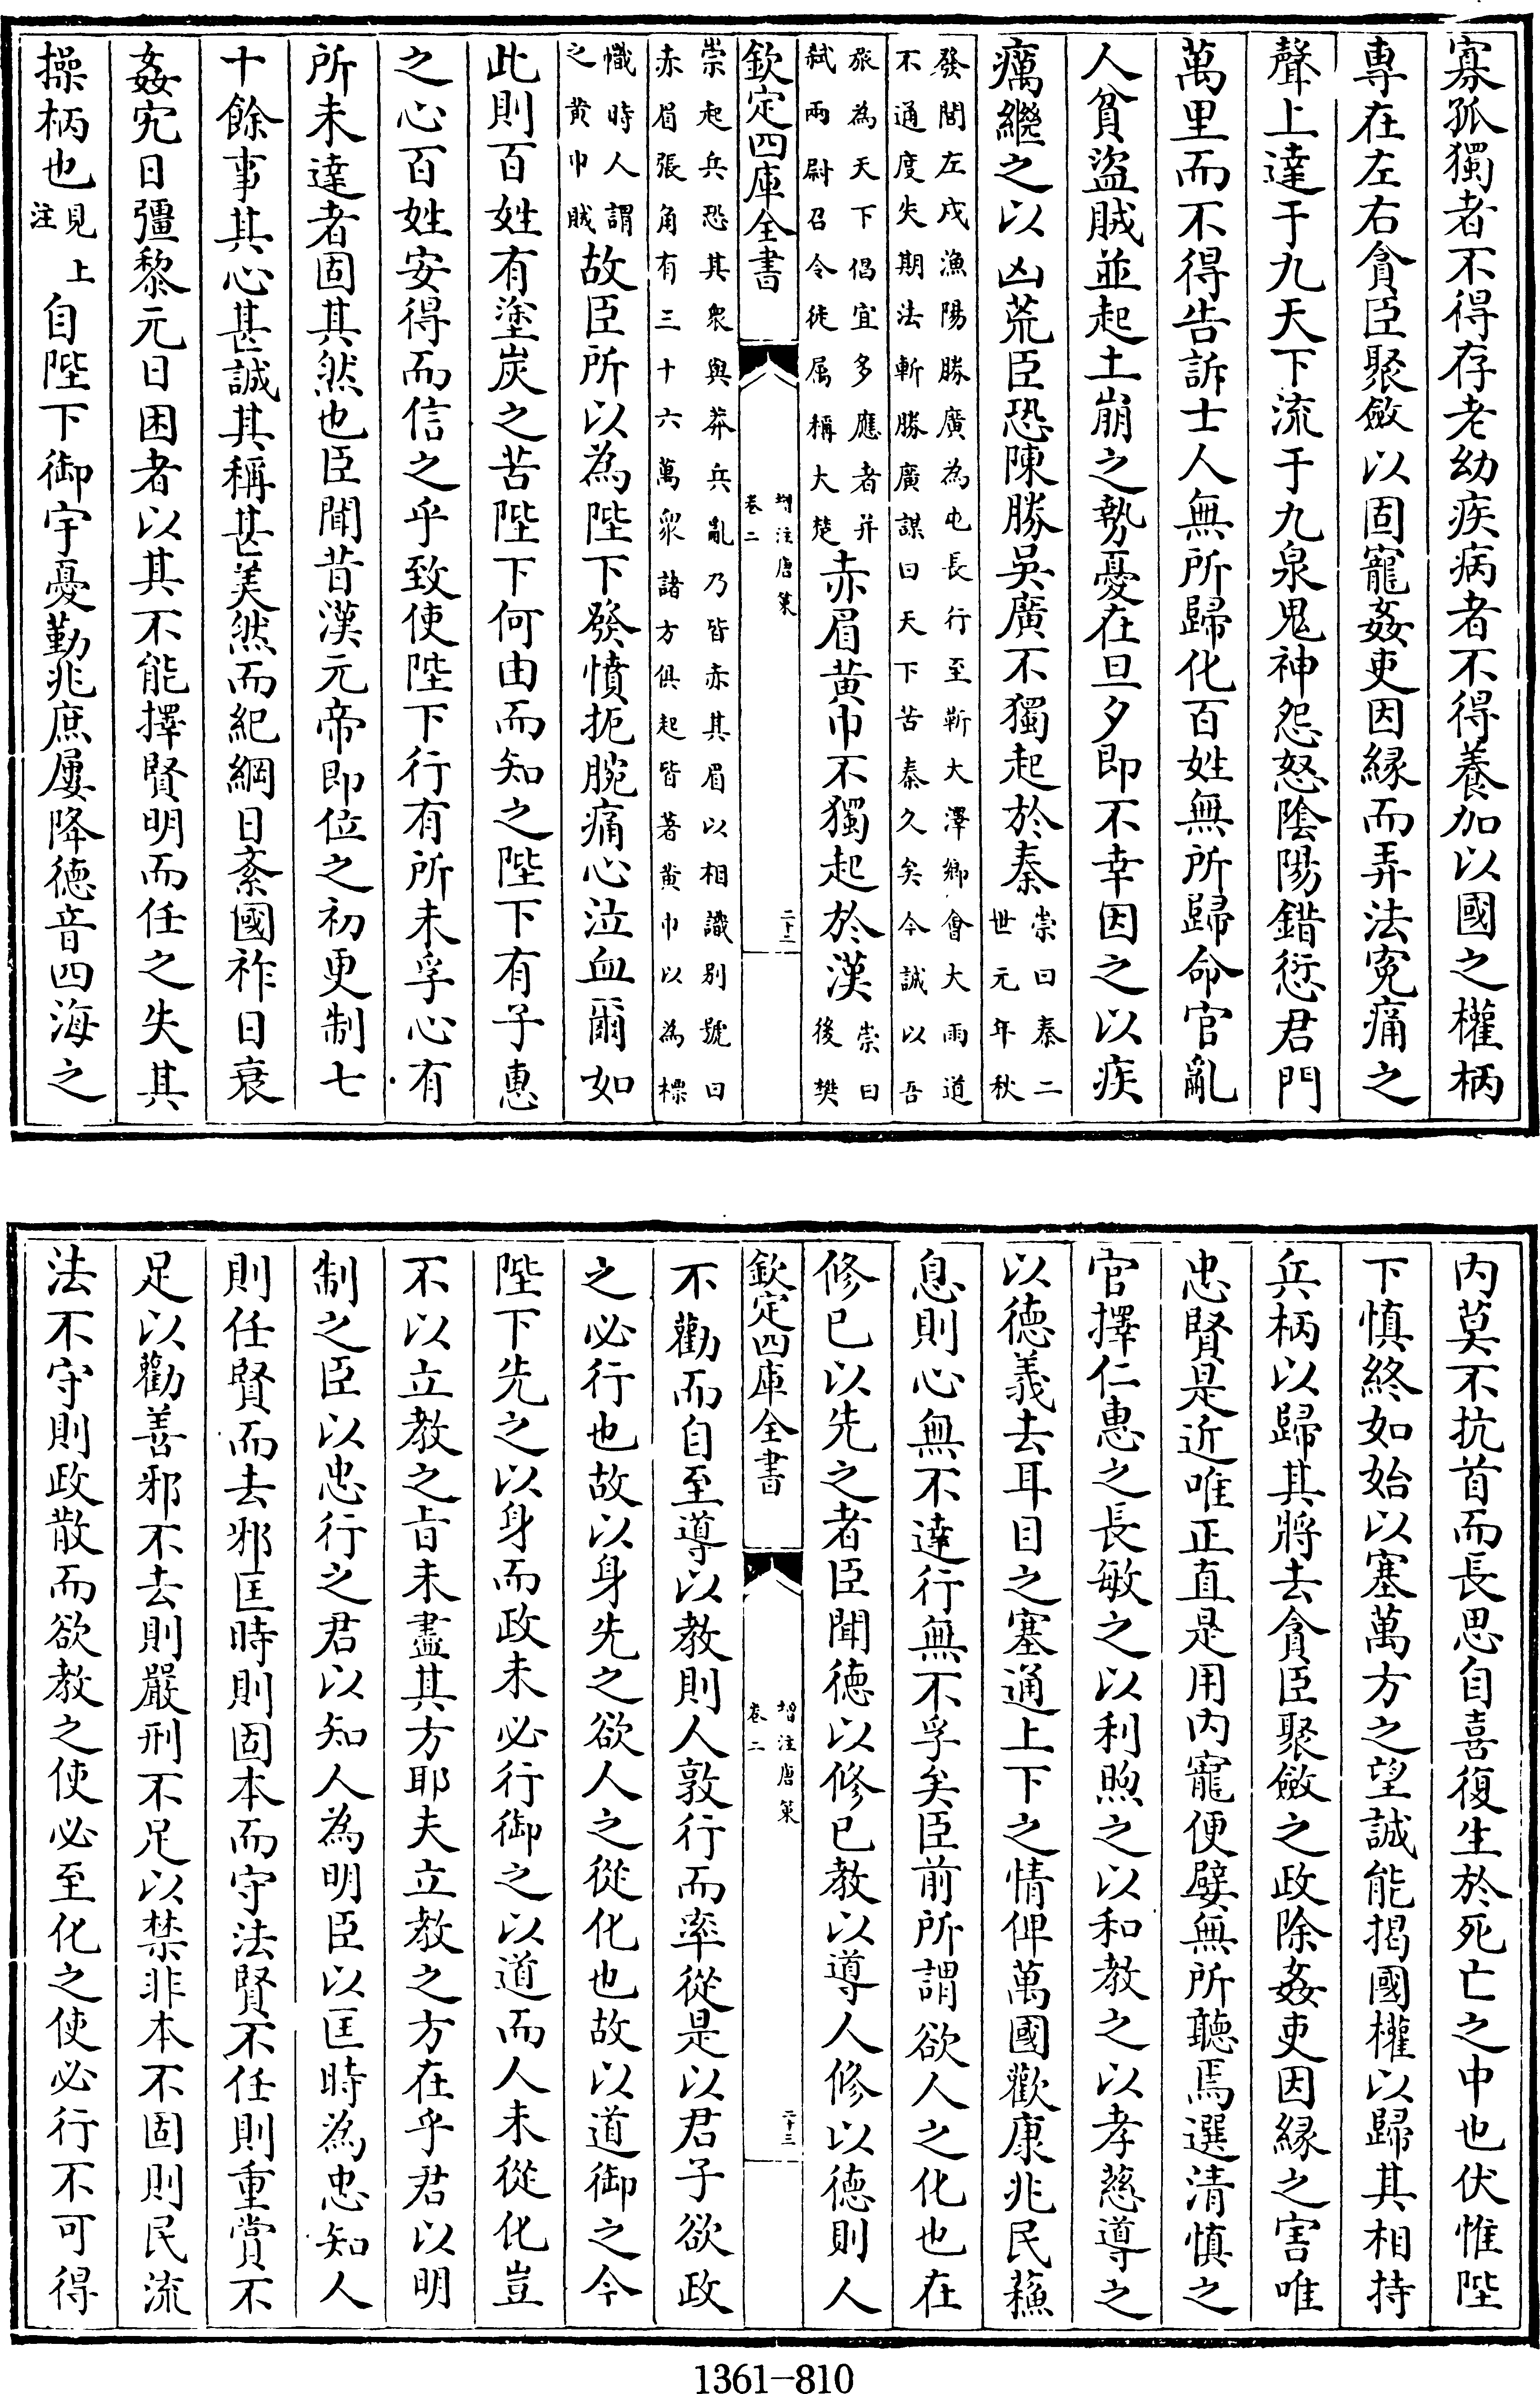 寡孤獨者不得存老幼疾病者不得養加以國之權柄
專在左右貪臣聚斂以固寵姦吏因緣而弄法寃痛之
聲上達于九天下流于九泉鬼神怨怒陰陽錯愆君門
萬里而不得告訴士人無所歸化百姓無所歸命官亂
人貧盜賊並起土崩之勢憂在旦夕即不幸因之以疾
癘繼之以凶荒臣恐陳勝吳廣不獨起於秦崇曰秦二
世元年秋
發閭左戍漁陽勝廣為屯長行至蘄大澤鄉會大雨道
不通度失期法斬勝廣謀曰天下苦秦久矣今誠以吾
旅為天下倡宜多應者并
弑兩尉召令徒属稱大楚赤眉黄巾不獨起於漢崇曰
後樊
欽定四庫全書
增注唐策
卷二
二十二
崇起兵恐其衆與莽兵亂乃皆赤其眉以相識别號曰
赤眉張角有三十六萬衆諸方俱起皆著黄巾以為標
幟時人謂
之黄巾賊故臣所以為陛下發憤扼腕痛心泣血爾如
此則百姓有塗炭之苦陛下何由而知之陛下有子惠
之心百姓安得而信之乎致使陛下行有所未孚心有
所未達者固其然也臣聞昔漢元帝即位之初更制七
十餘事其心甚誠其稱甚美然而紀綱日紊國祚日衰
姦宄日彊黎元日困者以其不能擇賢明而任之失其
操柄也見上
注自陛下御宇憂勤兆庶屢降德音四海之
内莫不抗首而長思自喜復生於死亡之中也伏惟陛
下慎終如始以塞萬方之望誠能揭國權以歸其相持
兵柄以歸其將去貪臣聚斂之政除姦吏因緣之害唯
忠賢是近唯正直是用内寵便嬖無所聽焉選清慎之
官擇仁惠之長敏之以利煦之以和教之以孝慈導之
以德義去耳目之塞通上下之情俾萬國歡康兆民蘓
息則心無不達行無不孚矣臣前所謂欲人之化也在
修已以先之者臣聞德以修已教以導人修以德則人
欽定四庫全書
增注唐策
卷二
二十三
不勸而自至導以教則人敦行而率從是以君子欲政
之必行也故以身先之欲人之從化也故以道御之今
陛下先之以身而政未必行御之以道而人未從化豈
不以立教之旨未盡其方耶夫立教之方在乎君以明
制之臣以忠行之君以知人為明臣以匡時為忠知人
則任賢而去邪匡時則固本而守法賢不任則重賞不
足以勸善邪不去則嚴刑不足以禁非本不固則民流
法不守則政散而欲教之使必至化之使必行不可得
1361-810